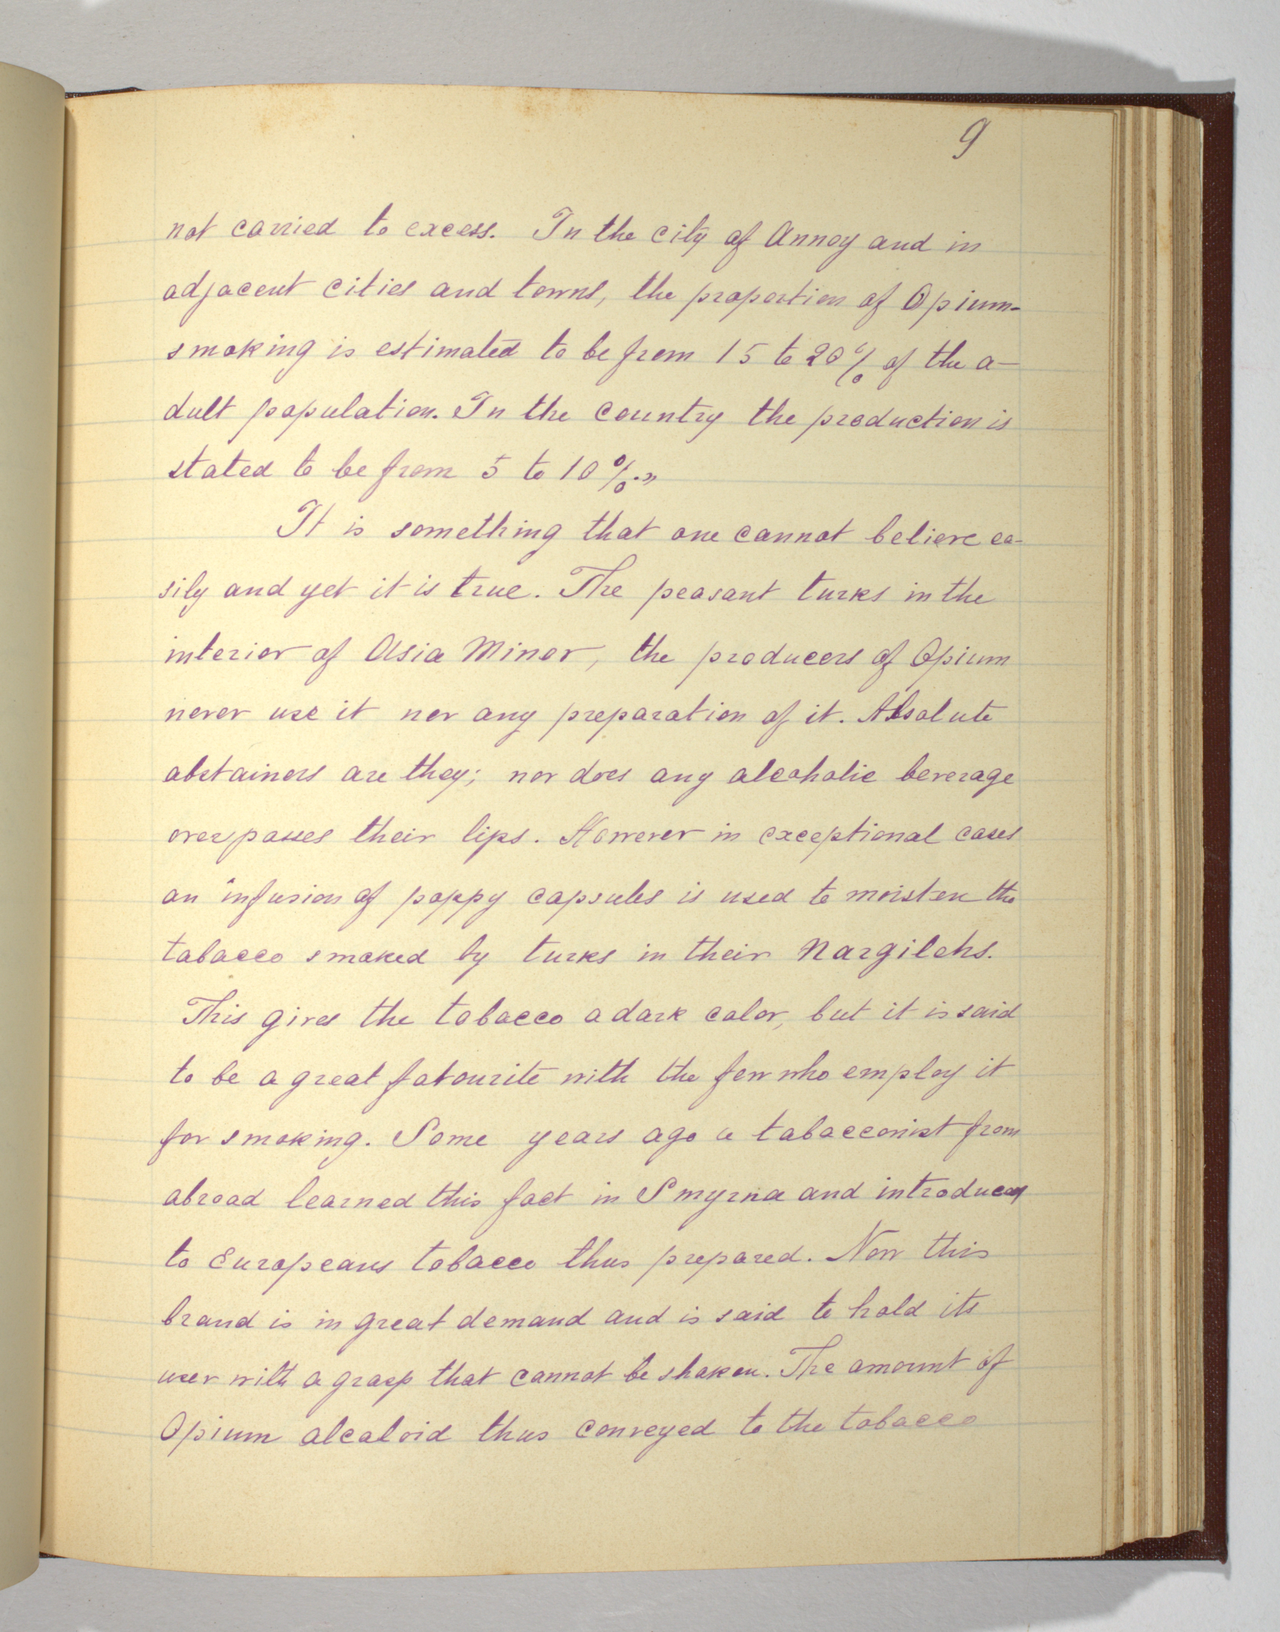 9
not carried to excess. In the city of Annoy and in
adjacent cities and towns, the proportion of Opium-
smoking is estimated to be from 15 to 20% of the a-
dult population. In the country the production is
stated to be from 5 to 10%."
It is something that one cannot believe ea-
sily and yet it is true. The peasant turks in the
interior of Asia Minor, the producers of Opium
never use it nor any preparation of it. Absolute
abstainers are they; nor does any alcoholic beverage
overpasses their lips. However in exceptional cases
an infusion of poppy capsules is used to moisten the
tabacco smoked by turks in their Nargilehs.
This gives the tobacco a dark color, but it is said
to be a great favourite with the few who employ it
for smoking. Some years ago a tabacconist from
abroad learned this fact in Smyrna and introduced
to Europeans tobacco thus prepared. Now this
brand is in great demand and is said to hold its
user with a grasp that cannot be shaken. The amount of
Opium alcaloid thus conveyed to the tobacco